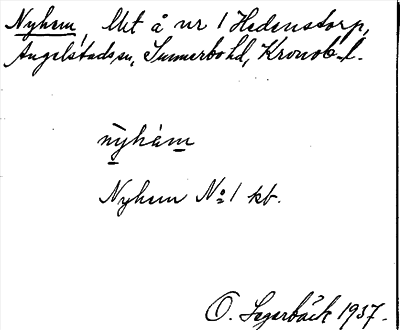 Nyhem, lht å nr 1 Hedenstorp,
Angelstads sn, Sunnerbo hd, Kronob. l.
nỳhèm
Nyhem No 1 kb.
O. Sagerbäck 1937.